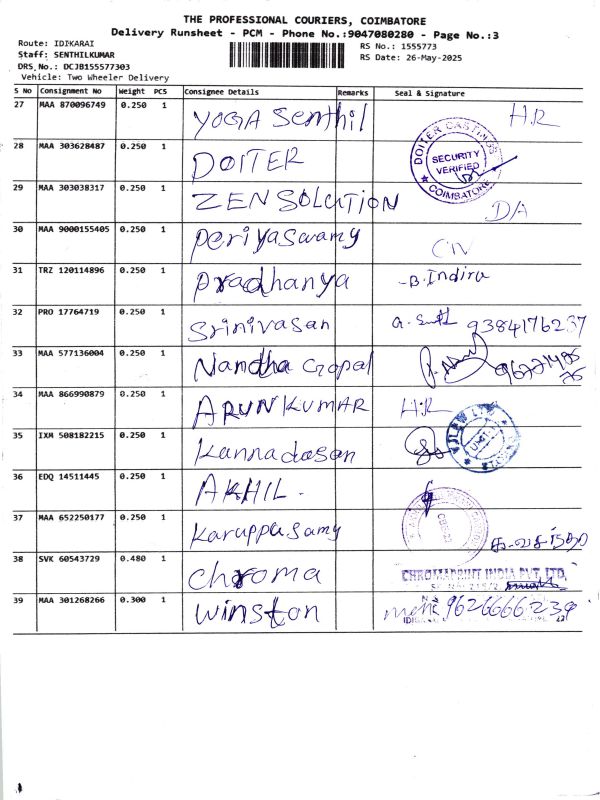 THE PROFESSIONAL COURIERS, COIMBATORE
Delivery Runsheet - PCM - Phone No.:9047080280 - Page No.:3
Route: IDIKARAI
Staff: SENTHILKUMAR
DRS No.: DCJB155577303
Vehicle: Two Wheeler Delivery
RS No.: 1555773
RS Date: 26-May-2025
S No Consignment No Weight PCS Consignee Details Remarks Seal & Signature
27 MAA 870096749 0.250 1 YOGA Senthil H.R
28 MAA 303628487 0.250 1 DOITER
DOITER CASTINGS
SECURITY
VERIFIED
COIMBATORE
29 MAA 303038317 0.250 1 ZEN SOLUTION D/A
30 MAA 9000155405 0.250 1 Periyaswamy
31 TRZ 120114896 0.250 1 Pradhanya B.Indira
32 PRO 17764719 0.250 1 Srinivasan 9384176237
33 MAA 577136004 0.250 1 Nandha Gopal
34 MAA 866990879 0.250 1 ARUN KUMAR H.R
35 IXM 508182215 0.250 1 Kannadasan
36 EDQ 14511445 0.250 1 AKHIL.
37 MAA 652250177 0.250 1 Karuppusamy
38 SVK 60543729 0.480 1 Chroma
CHROMAPRINT INDIA PVT. LTD.
39 MAA 301268266 0.300 1 Winston 9626666239